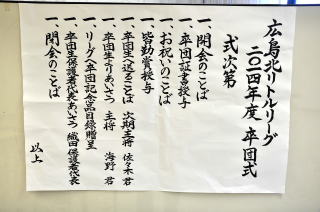 広島北リトルリーグ
二〇一四年度 卒団式
式次第
一、開会のことば
一、卒団証書授与
一、お祝いのことば
一、皆勤賞授与
一、卒団生へ送ることば 次期主将 佐々木 君
一、卒団生よりあいさつ 主将 海野 君
一、リーグへ卒団記念品目録贈呈
一、卒団生保護者代表あいさつ 織田 保護者代表
一、閉会のことば
以上